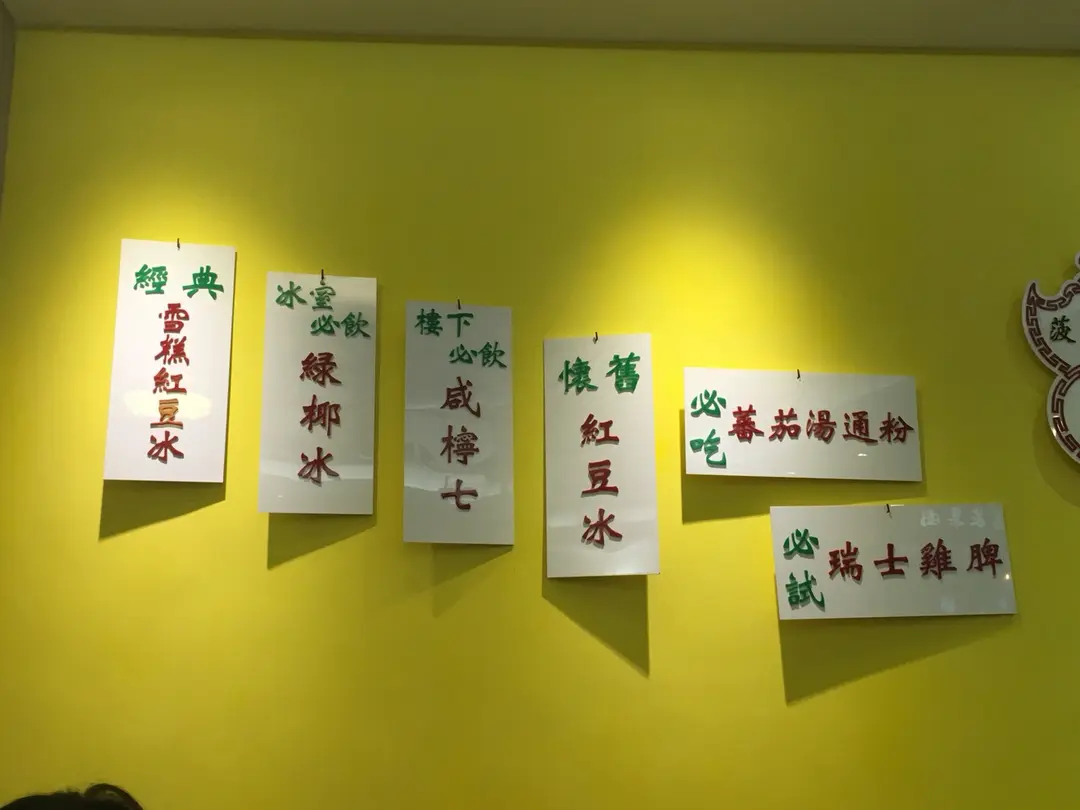 經典
雪糕紅豆冰
冰室
必飲
綠椰冰
樓下
必飲
咸檸七
懷舊
紅豆冰
必吃
蕃茄湯通粉
必試
瑞士雞脾
菠